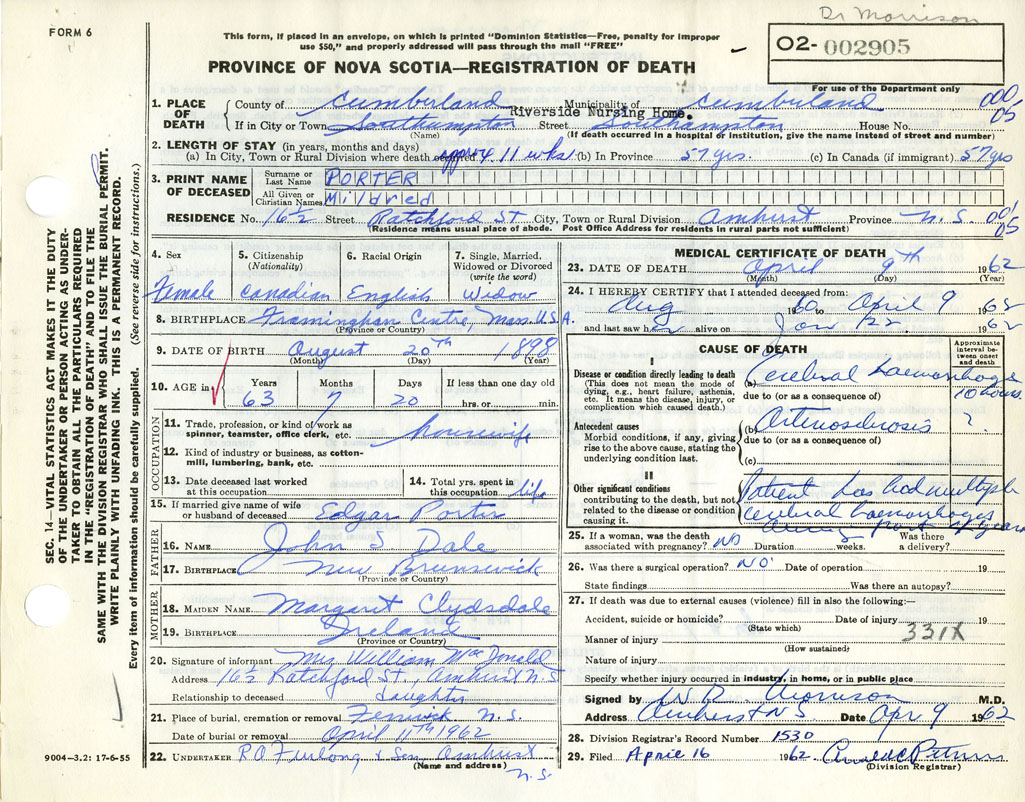 Dr Morrison
FORM 6
This form, if placed in an envelope, on which is printed "Dominion Statistics—Free, penalty for improper
use $50," and properly addressed will pass through the mail "FREE"
O2- 002905
For use of the Department only
PROVINCE OF NOVA SCOTIA—REGISTRATION OF DEATH
SEC. 14—VITAL STATISTICS ACT MAKES IT THE DUTY
OF THE UNDERTAKER OR PERSON ACTING AS UNDER-
TAKER TO OBTAIN ALL THE PARTICULARS REQUIRED
IN THE "REGISTRATION OF DEATH" AND TO FILE THE
SAME WITH THE DIVISION REGISTRAR WHO SHALL ISSUE THE BURIAL PERMIT.
WRITE PLAINLY WITH UNFADING INK. THIS IS A PERMANENT RECORD.
Every item of information should be carefully supplied. (See reverse side for instructions.)
1. PLACE OF DEATH
County of Cumberland Municipality of Cumberland 000/05
Riverside Nursing Home.
If in City or Town Southampton Street Southampton House No.
(Name) (If death occurred in a hospital or institution, give the name instead of street and number)
2. LENGTH OF STAY (in years, months and days)
(a) In City, Town or Rural Division where death occurred approx 11 wks. (b) In Province 57 yrs. (c) In Canada (if immigrant) 57 yrs
3. PRINT NAME OF DECEASED
Surname or Last Name PORTER
All Given or Christian Names Mildred
RESIDENCE No. 16½ Street Ratchford St City, Town or Rural Division Amherst Province N.S. 001/05
(Residence means usual place of abode. Post Office Address for residents in rural parts not sufficient)
4. Sex 5. Citizenship (Nationality) 6. Racial Origin 7. Single, Married, Widowed or Divorced (write the word)
Female Canadian English Widow
8. BIRTHPLACE Framingham Centre, Mass. U.S.A.
(Province or Country)
9. DATE OF BIRTH August 20th 1898
(Month) (Day) (Year)
10. AGE in Years Months Days If less than one day old
63 7 20 hrs. or min.
OCCUPATION
11. Trade, profession, or kind of work as
spinner, teamster, office clerk, etc. housewife
12. Kind of industry or business, as cotton-
mill, lumbering, bank, etc.
13. Date deceased last worked
at this occupation
14. Total yrs. spent in
this occupation life
15. If married give name of wife
or husband of deceased Edgar Porter
FATHER
16. NAME John S Dale
17. BIRTHPLACE New Brunswick
(Province or Country)
MOTHER
18. MAIDEN NAME Margaret Clydsdale
19. BIRTHPLACE Ireland
(Province or Country)
20. Signature of informant Mrs William MacDonald
Address 16½ Ratchford St., Amherst N.S
Relationship to deceased daughter
21. Place of burial, cremation or removal Fenwick N.S.
Date of burial or removal April 11th 1962
22. UNDERTAKER R.O Furlong & Son Amherst
(Name and address) N.S
9004-3.2: 17-6-55
MEDICAL CERTIFICATE OF DEATH
23. DATE OF DEATH April 9th 1962
(Month) (Day) (Year)
24. I HEREBY CERTIFY that I attended deceased from:
Aug 1960 to April 9 1962
and last saw h alive on Jan 22 1962
CAUSE OF DEATH
Approximate interval between onset and death
I
Disease or condition directly leading to death
(This does not mean the mode of
dying, e.g., heart failure, asthenia,
etc. It means the disease, injury, or
complication which caused death.)
(a) Cerebral haemorrhage 10 hours.
due to (or as a consequence of)
Antecedent causes
Morbid conditions, if any, giving
rise to the above cause, stating the
underlying condition last.
(b) Arteriosclerosis ?
due to (or as a consequence of)
(c)
II
Other significant conditions
contributing to the death, but not
related to the disease or condition
causing it.
Patient has had multiple
cerebral haemorrhages
during past years
25. If a woman, was the death
associated with pregnancy? No Duration weeks. Was there
a delivery?
26. Was there a surgical operation? No Date of operation 19
State findings Was there an autopsy?
27. If death was due to external causes (violence) fill in also the following:—
Accident, suicide or homicide? Date of injury 19
(State which) 331X
Manner of injury
(How sustained)
Nature of injury
Specify whether injury occurred in industry, in home, or in public place
Signed by W R Morrison M.D.
Address Amherst NS Date Apr 9 1962
28. Division Registrar's Record Number 1530
29. Filed April 16 1962
(Division Registrar)